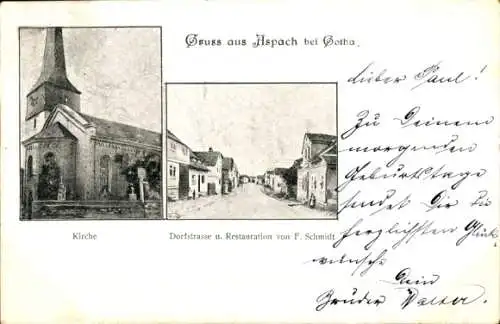 Gruss aus Aspach bei Gotha.
Lieber Paul!
Zu Deinem
morgenden
Geburtstage
sendet Dir die
herzlichsten Glück-
wünsche
Dein
Bruder Walter.
Kirche
Dorfstrasse u. Restauration von F. Schmidt